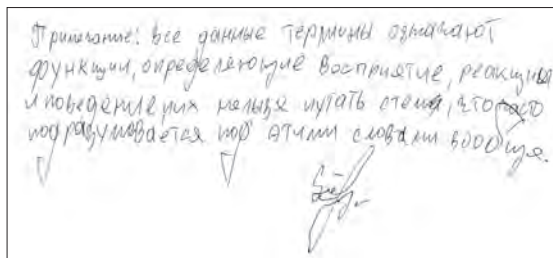 Примечание: все данные термины означают
функции, определяющие восприятие, реакция
и поведение, их нельзя путать с тем, что
подразумевается под этими словами вообще.